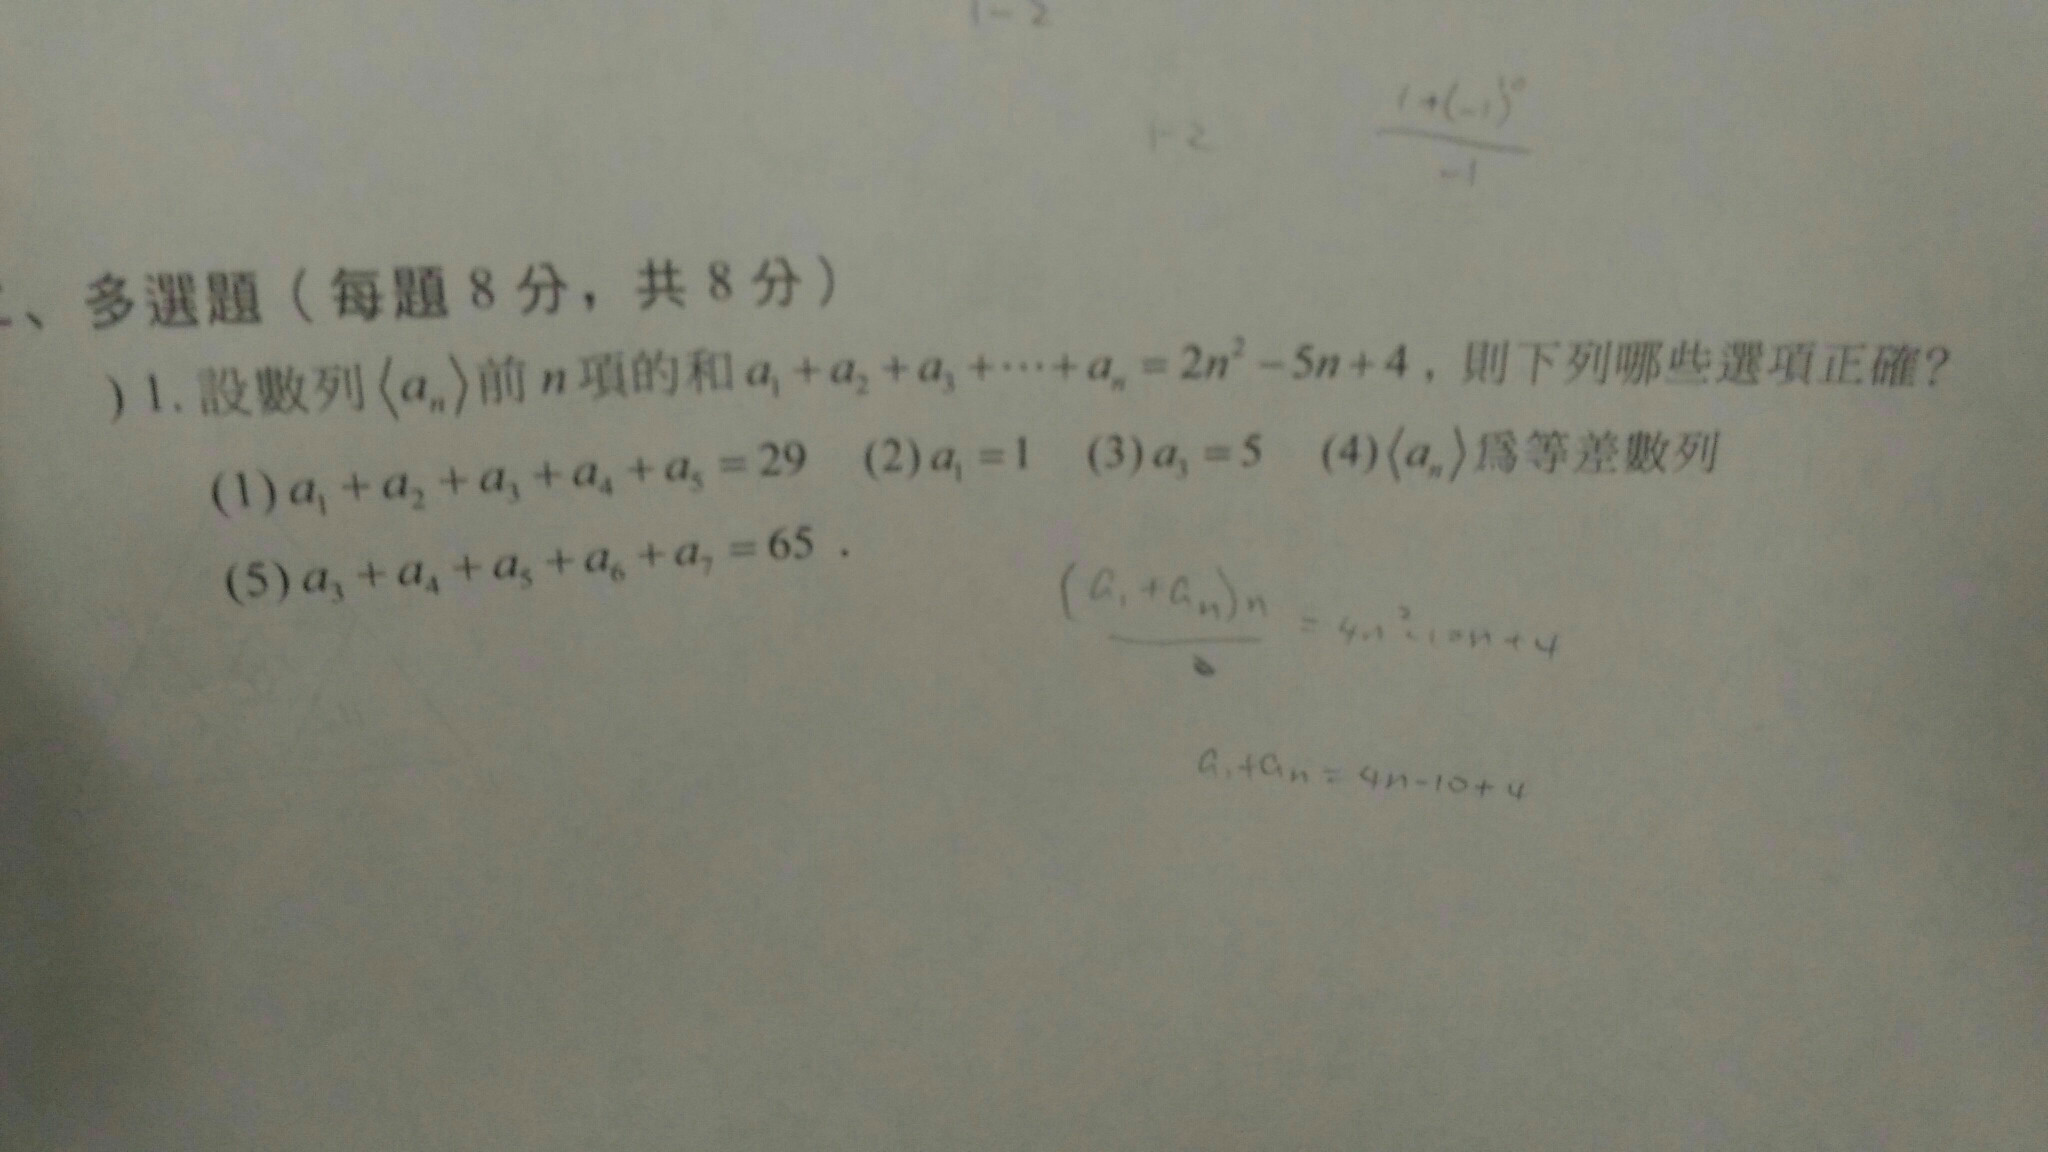 1-2
1-2
1+(-1)
-1
、多選題（每題 8 分，共 8 分）
) 1. 設數列⟨aₙ⟩前 n 項的和 a₁ + a₂ + a₃ + ⋯ + aₙ = 2n² − 5n + 4，則下列哪些選項正確？
(1) a₁ + a₂ + a₃ + a₄ + a₅ = 29 (2) a₁ = 1 (3) a₃ = 5 (4)⟨aₙ⟩爲等差數列
(5) a₃ + a₄ + a₅ + a₆ + a₇ = 65 .
(a₁ + aₙ)n = 4n² - 10n + 4
a₁ + aₙ = 4n - 10 + 4